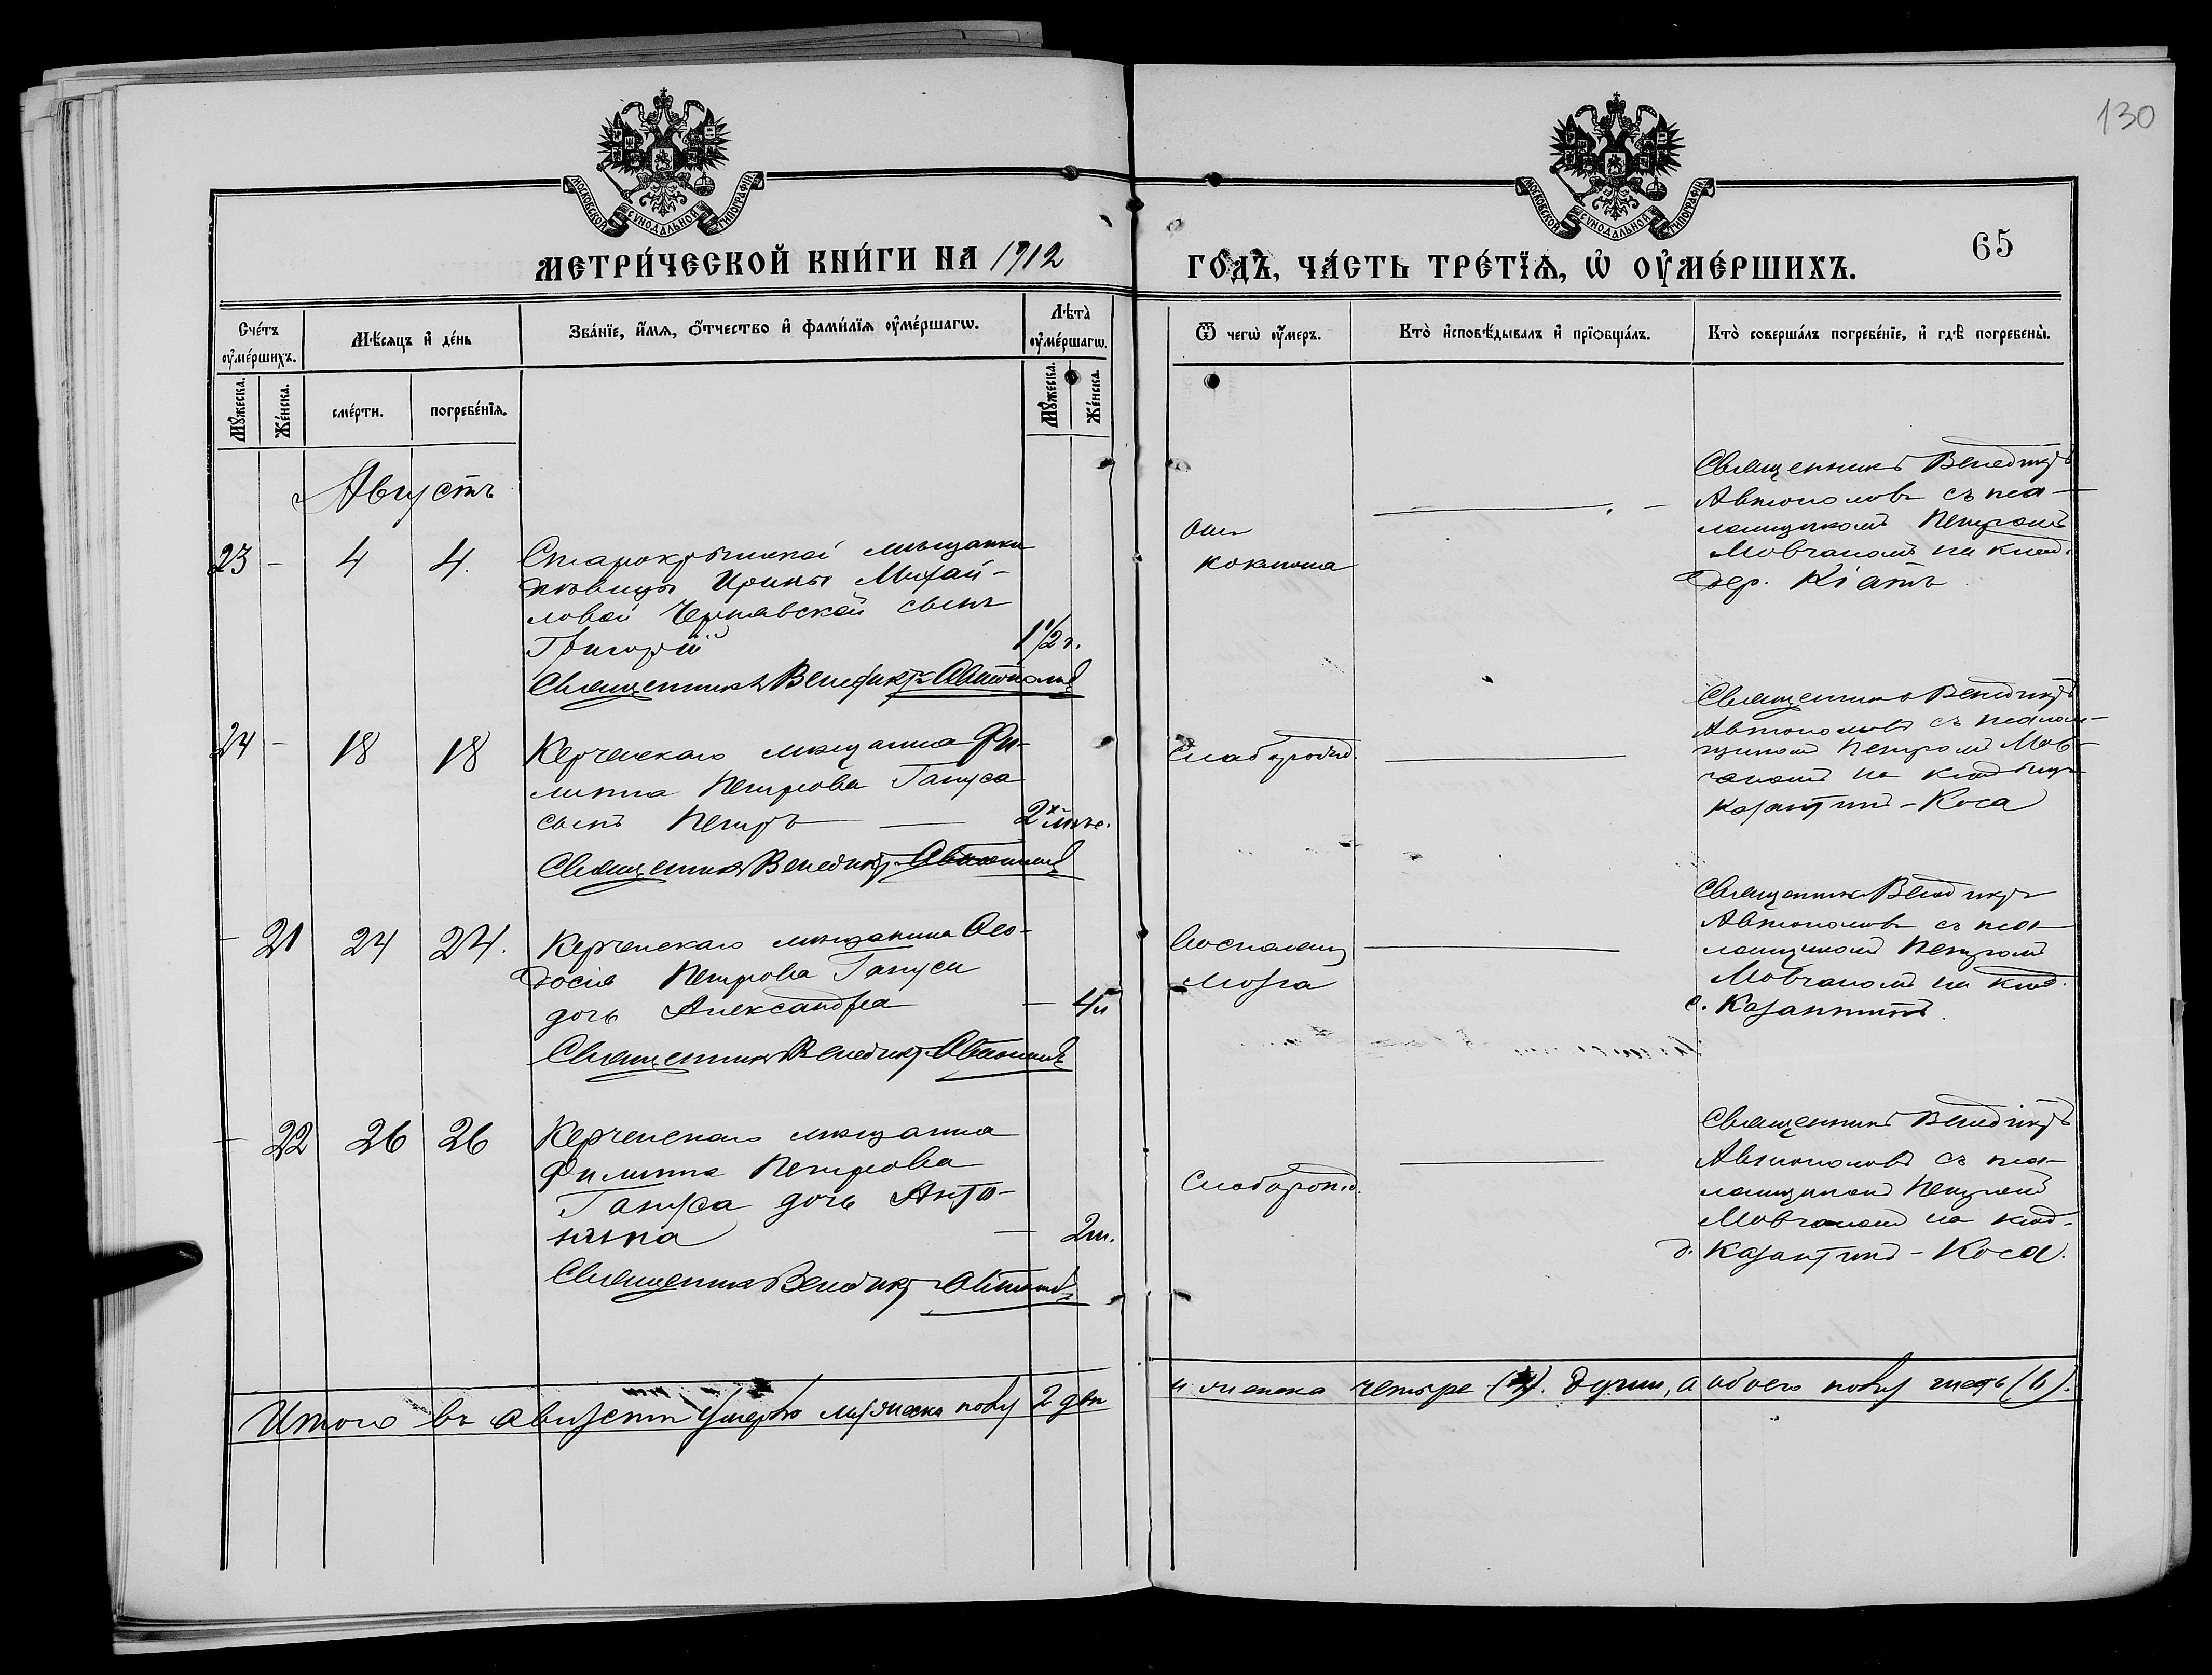 130
МОСКОВСКОЙ СѴНОДАЛЬНОЙ ТИПОГРАФІИ
МОСКОВСКОЙ СѴНОДАЛЬНОЙ ТИПОГРАФІИ
МЕТРИ́ЧЕСКОЙ КНИ́ГИ НА 1912
ГО́ДЪ, ЧА́СТЬ ТРЕ́ТЇѦ, Ѡ҆ ОУ҆МЕ́РШИХЪ.
65
Сче́тъ оу҆ме́ршихъ.
Мѣ́сяцъ и҆ де́нь
Зва́нїе, и҆́мѧ, ѻ҆́тчество и҆ фами́лїѧ оу҆ме́ршагѡ.
Лѣ́та̀ оу҆ме́ршагѡ.
Ѿ чегѡ̀ оу҆́меръ.
Кто̀ и҆сповѣ́дывалъ и҆ прїѻбща́лъ.
Кто̀ соверша́лъ погребе́нїе, и҆ гдѣ̀ погребены̀.
Мꙋ́жеска.
Же́нска.
сме́рти.
погребе́нїѧ.
Мꙋ́жеска.
Же́нска.
Августъ
23 - 4 4.
Старокрымской мѣщанки
дѣвицы Ирины Михай-
ловой Чернявской сынъ
Григорій 1 1/2 г.
Священникъ Венедиктъ Автономовъ
отъ
коклюша
Священникъ Венедиктъ
Автономовъ съ пса-
ломщикомъ Петромъ
Мовчаномъ на клад.
дер. Кіятъ
24 - 18 18
Керченскаго мѣщанина Фи-
липпа Петрова Гапуса
сынъ Петръ 2хъ мѣс.
Священникъ Венедиктъ Автономовъ
Слаборожд.
Священникъ Венедиктъ
Автономовъ съ псалом-
щикомъ Петромъ Мов-
чаномъ на кладбищѣ
Казантипъ-Коса
- 21 24 24.
Керченскаго мѣщанина Ѳео-
досія Петрова Гапуси
дочь Александра
Священникъ Венедиктъ Автономовъ
Воспаленія
мозга
Священникъ Венедиктъ
Автономовъ съ пса-
ломщикомъ Петромъ
Мовчаномъ на клад.
с. Казантипъ.
- 22 26 26
Керченскаго мѣщанина
Филиппа Петрова
Гапуса дочь Анто-
нина 2 м.
Священникъ Венедиктъ Автономовъ
Слаборожд.
Священникъ Венедиктъ
Автономовъ съ пса-
ломщикомъ Петромъ
Мовчаномъ на клад.
д. Казантипъ-Коса.
Итого въ августѣ умерло мужеска полу 2 двѣ
и женска четыре (4). души, а обоего полу шесть (6).